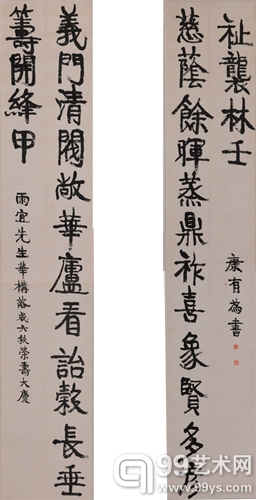 義門清閥敞華廬看詒穀長垂
籌開絳甲
雨宜先生華構落成六秩榮壽大慶
慈蔭餘暉蒸鼎祚喜象賢多彥
祉襲林壬
康有為書
99艺术网
99ys.com